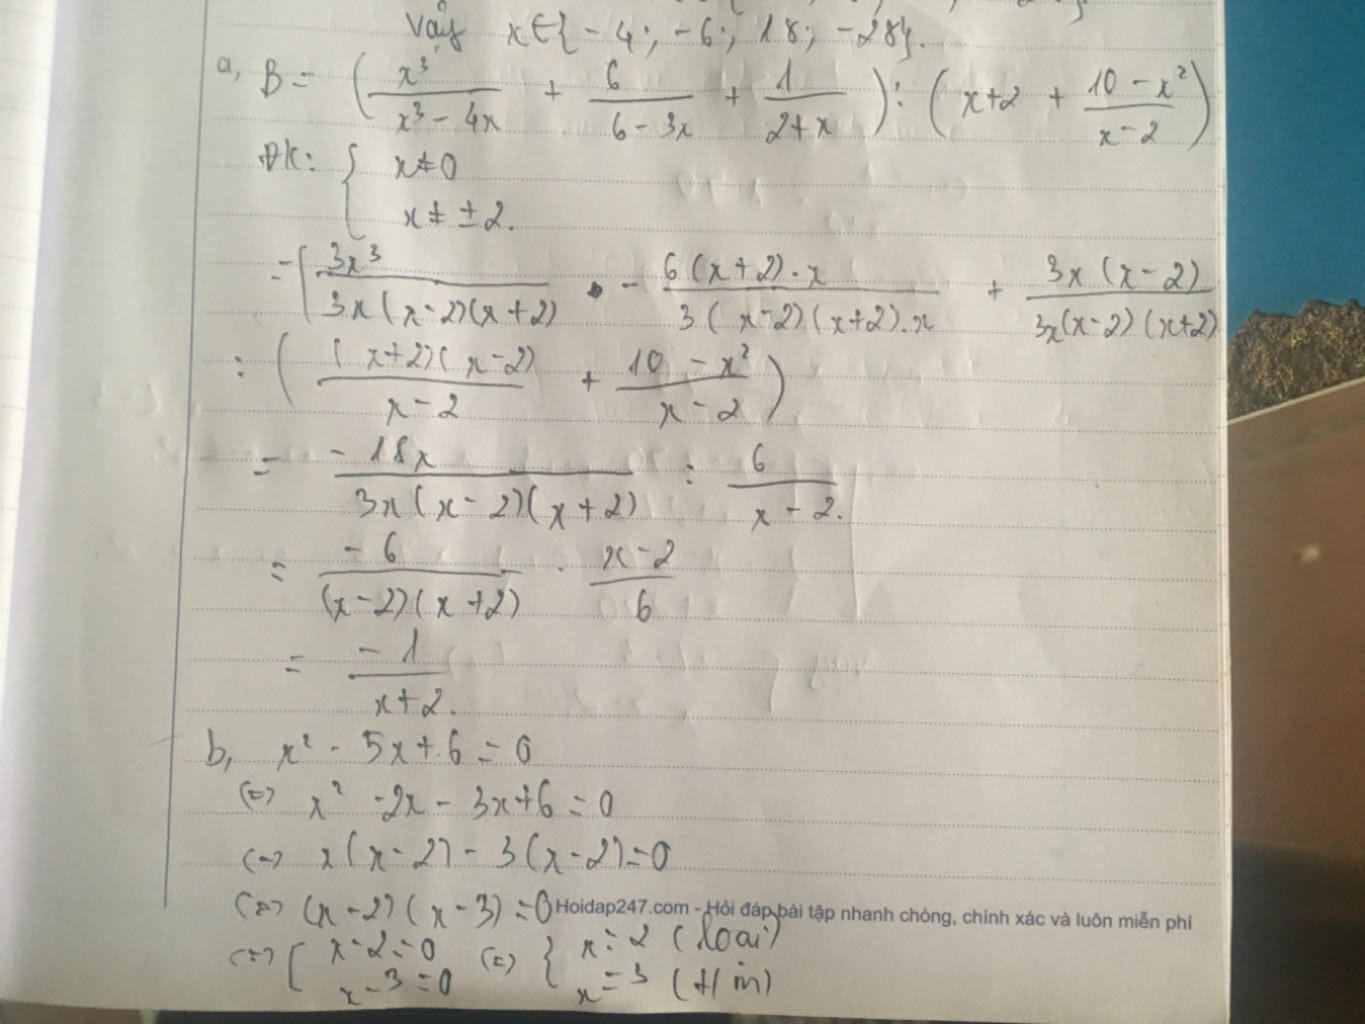 Vậy x ∈ {-4; -6; 18; -28}.
a, B = (x³/(x³ - 4x) + 6/(6 - 3x) + 1/(2 + x)) : (x + 2 + (10 - x²)/(x - 2))
ĐK: { x ≠ 0
x ≠ ± 2.
= [3x³/(3x(x - 2)(x + 2)) - (6(x + 2).x)/(3(x - 2)(x + 2).x) + (3x(x - 2))/(3x(x - 2)(x + 2))
: (((x + 2)(x - 2))/(x - 2) + (10 - x²)/(x - 2))
= (-18x)/(3x(x - 2)(x + 2)) : 6/(x - 2).
= (-6)/((x - 2)(x + 2)) . (x - 2)/6
= (-1)/(x + 2).
b, x² - 5x + 6 = 0
(=) x² - 2x - 3x + 6 = 0
(=) x(x - 2) - 3(x - 2) = 0
(=) (x - 2)(x - 3) = 0
Hoidap247.com - Hỏi đáp bài tập nhanh chóng, chính xác và luôn miễn phí
(=) [ x - 2 = 0 (=) { x = 2 (loại)
x - 3 = 0 x = 3 (t/m)